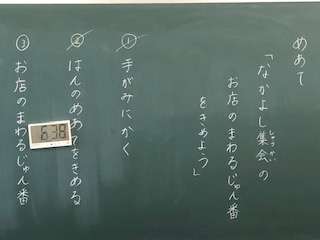 めあて
「なかよし集会の
しゅうかい
お店のまわるじゅん番
をきめよう」
① 手がみにかく
② はんのめあてをきめる
③ お店のまわるじゅん番
6:38